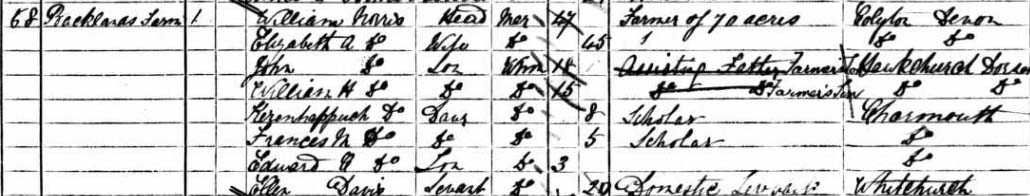 68 Backlands Farm 1 William Norris Head Mar 47 Farmer of 70 acres Colyton Devon
Elizabeth A Do Wife Do 45 Do Do
John Do Son Unm 18 Assisting Father Farmer's Son Hawkchurch Dorset
William H Do Do Do 15 Do Do Farmer's Son Do Do
Kerenhappuch Do Daur Do 8 Scholar Charmouth
Frances M Do Do Do 5 Scholar Do
Edward Do Son Do 3 Do
Ellen Davis Servant Do 20 Domestic Servant Whitchurch